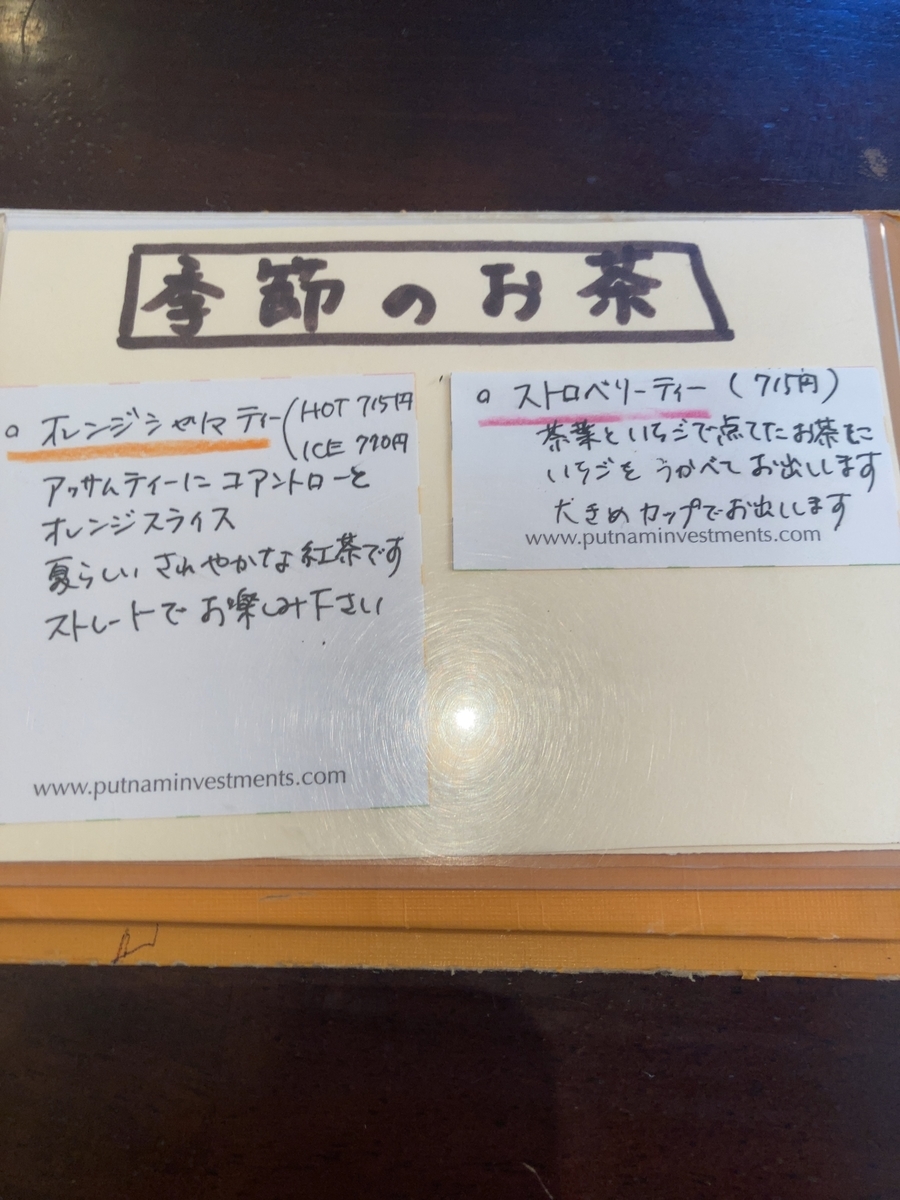 季節のお茶
オレンジシャリマティー(HOT 715円
ICE 770円
アッサムティーにコアントローと
オレンジスライス
夏らしいさわやかな紅茶です
ストレートでお楽しみ下さい
www.putnaminvestments.com
ストロベリーティー (715円)
茶葉といちごで点てたお茶に
いちごをうかべてお出しします
大きめカップでお出しします
www.putnaminvestments.com